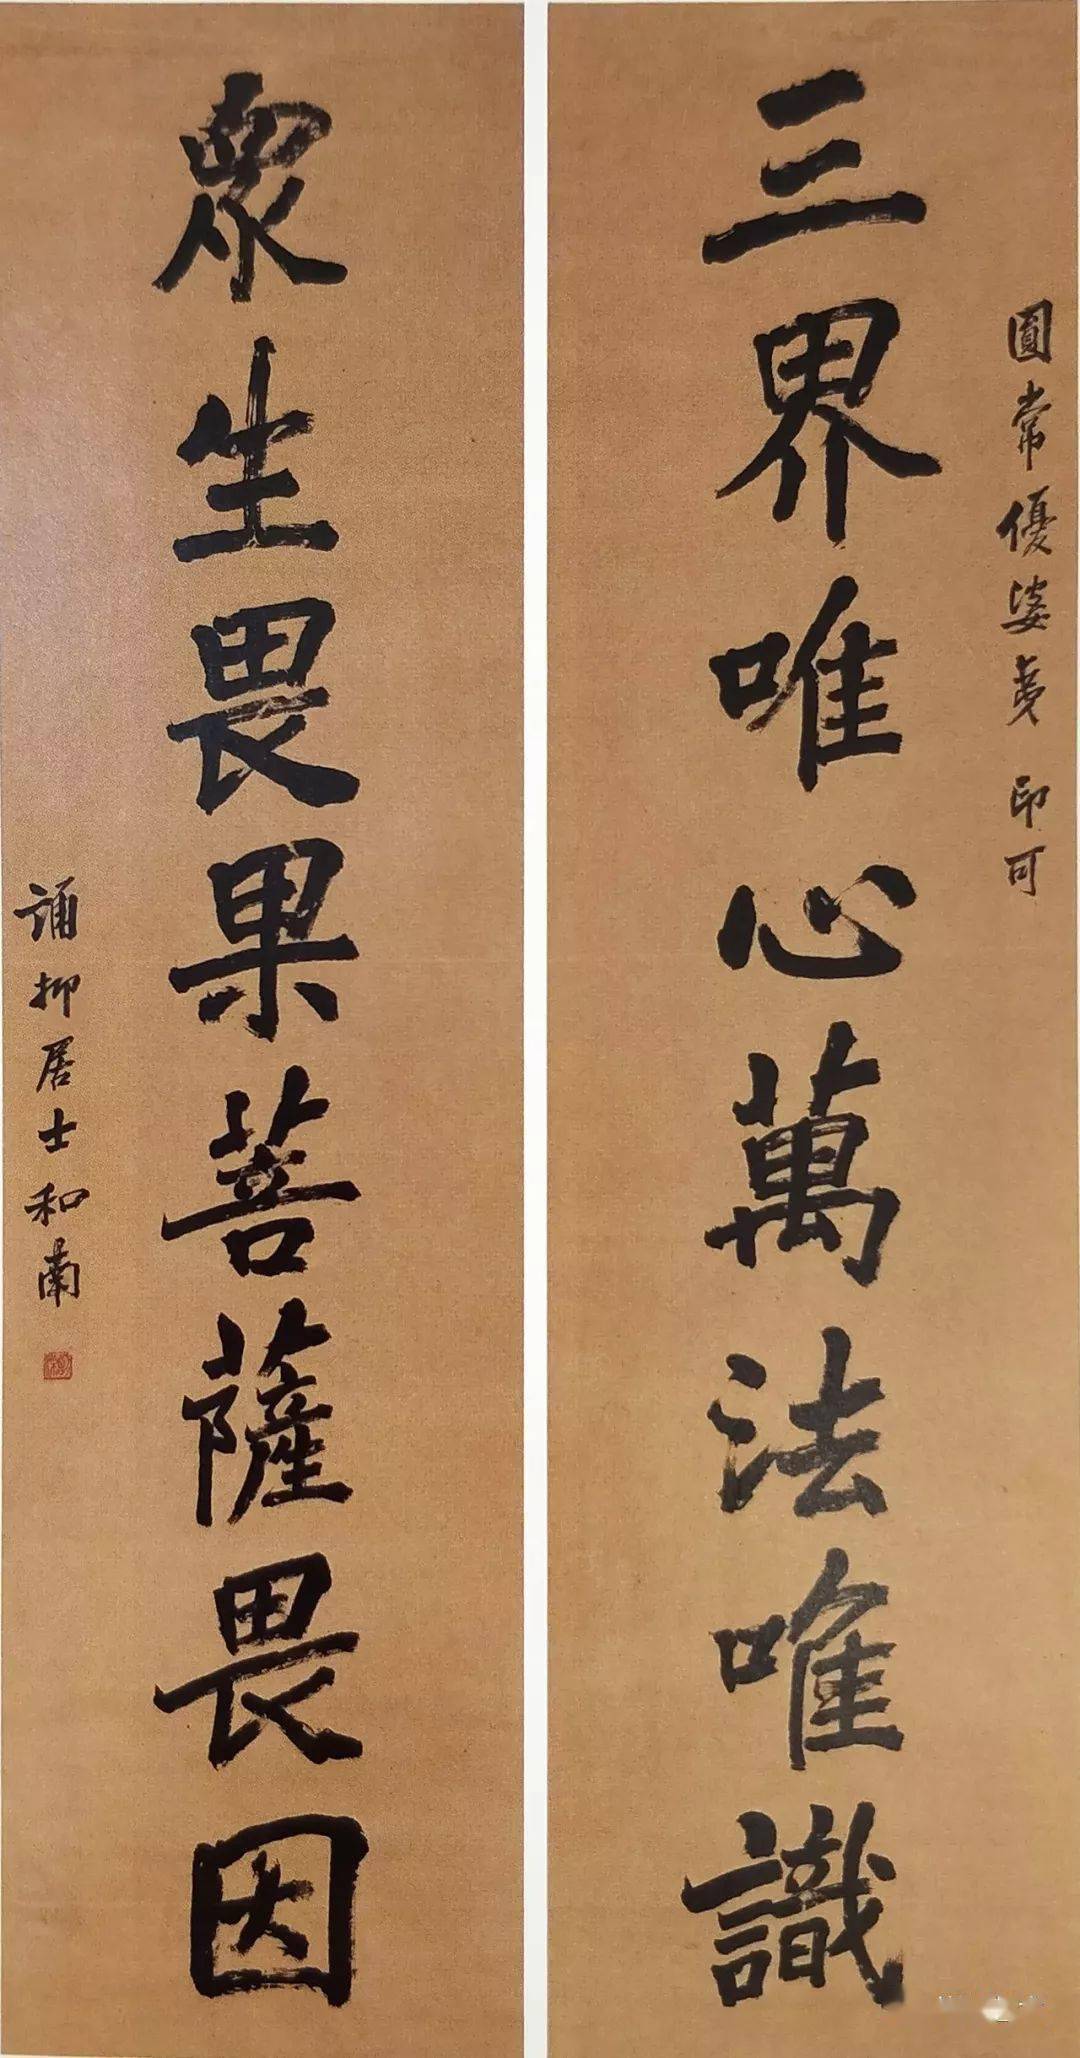 圓常優婆夷 印可
三界唯心萬法唯識
眾生畏果菩薩畏因
誦抑居士和南